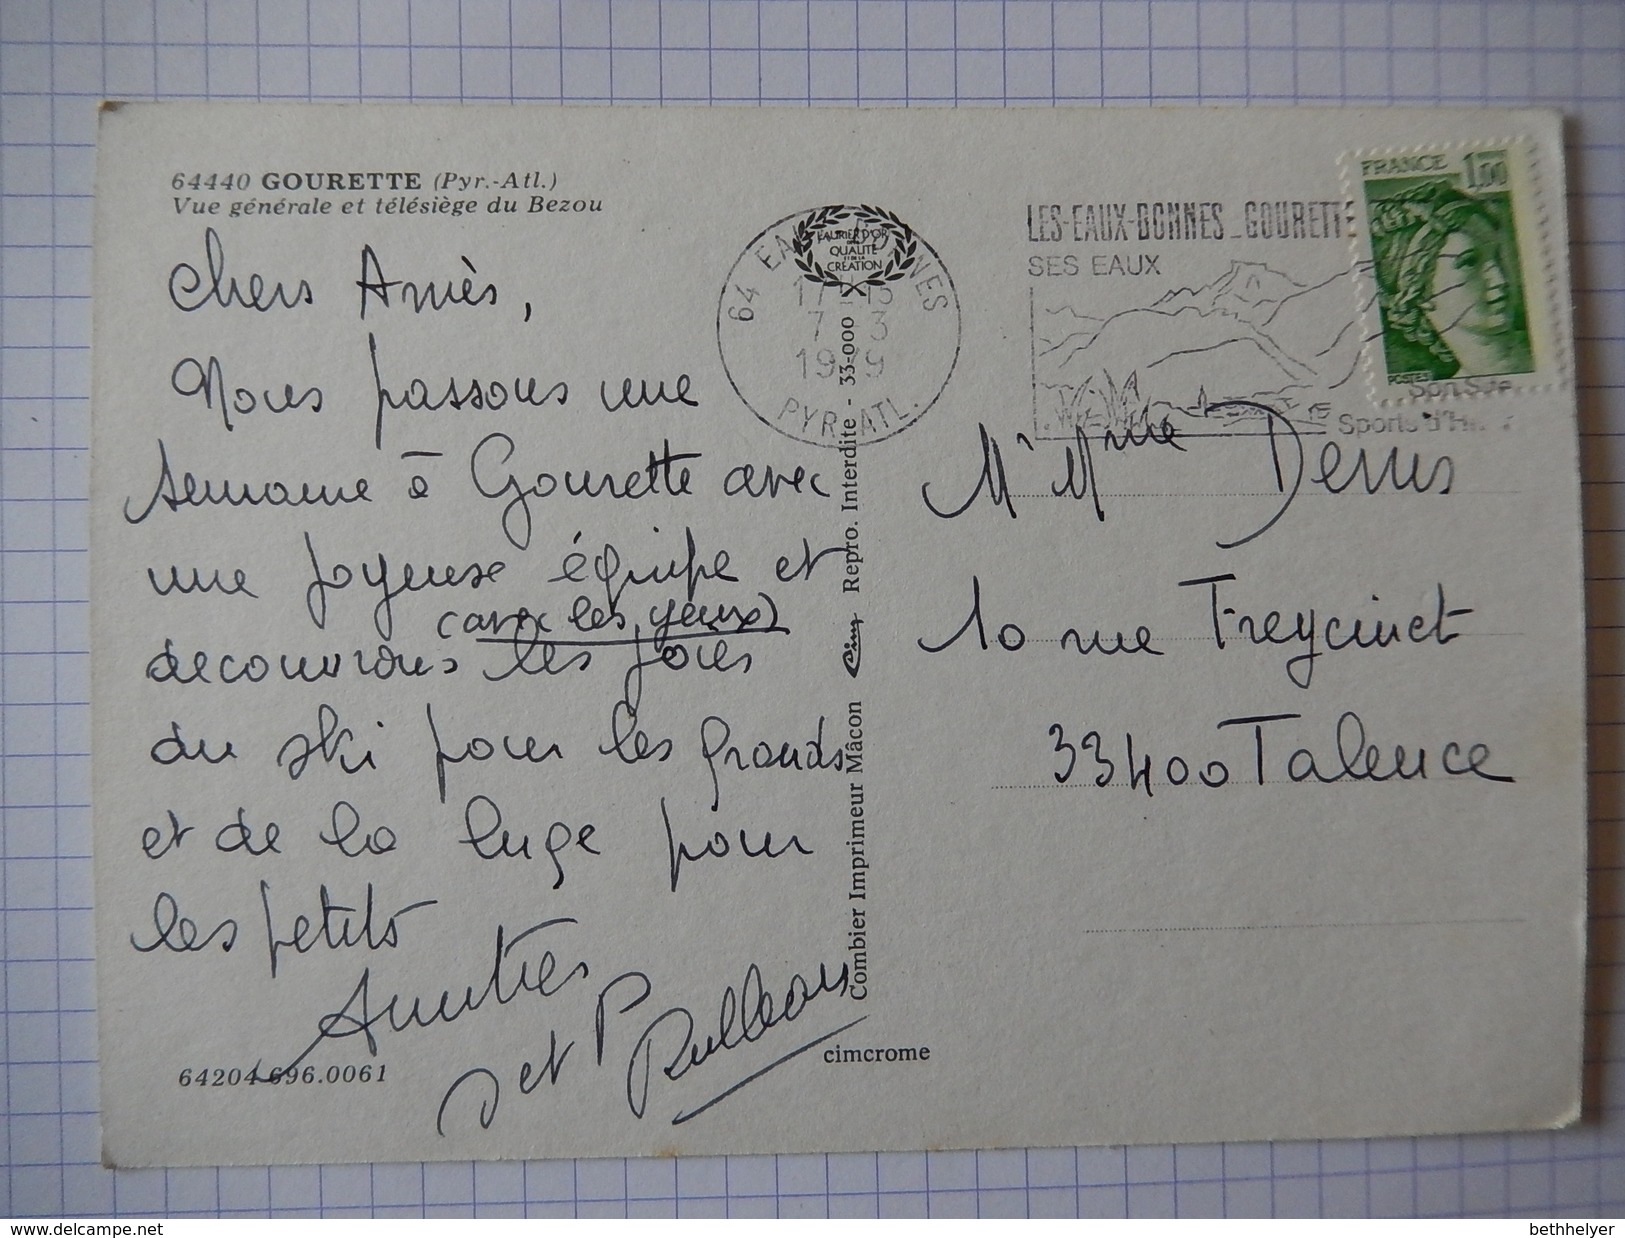 64440 GOURETTE (Pyr.-Atl.)
Vue générale et télésiège du Bezou
Chers Amiès,
Nous passons une
semaine à Gourette avec
une joyeuse équipe et
(avec les yeux)
decouvrons les joies
du ski pour les grands
et de la luge pour
les petits
Amitiés
et P
64204 696.0061
cimcrome
Combier Imprimeur Mâcon Cim Repro. Interdite - 33-000
LAURIER D'OR
QUALITÉ
CRÉATION
64 EAUX BONNES
17 15
7 - 3
1979
PYR. ATL.
LES-EAUX-BONNES_GOURETTE
SES EAUX
Son Site
Sports d'H
FRANCE 1,00
POSTES
Mr Mme Denis
10 rue Freycinet
33400 Talence
delcampe.net
bethhelyer